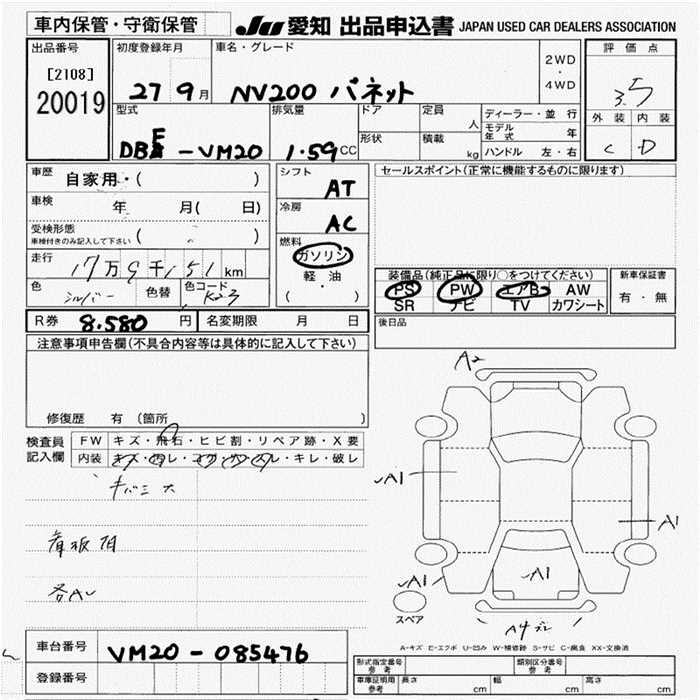 車内保管・守衛保管
JU 愛知 出品申込書 JAPAN USED CAR DEALERS ASSOCIATION
出品番号
[2108]
20019
初度登録年月
27 9月
車名・グレード
NV200 バネット
2WD
・
4WD
評価点
3.5
外装 内装
C D
型式
DBF-VM20
排気量
1.59CC
ドア
形状
定員
人
積載
kg
ディーラー・並行
モデル年式 年
ハンドル 左・右
車歴
自家用・( )
車検
年 月( 日)
受検形態
車検付きのみ記入して下さい ( )
走行
17万9千151km
色
シルバー
色替
色コード
K23
シフト
AT
冷房
AC
燃料
ガソリン
軽・油
( ・ )
セールスポイント(正常に機能するものに限ります)
装備品(純正品に限り○をつけてください)
PS PW エアB AW
SR ナビ TV カワシート
新車保証書
有・無
R券 8.580 円
名変期限 月 日
後日品
注意事項申告欄(不具合内容等は具体的に記入して下さい)
修復歴 有 (箇所 )
検査員
記入欄
FW キズ・飛石・ヒビ割・リペア跡・X要
内装 キズ・汚レ・コゲ・サビ・キレ・破レ
キバミ大
看板有
各AU
A2
A1
A1
A1
A1
A4
スペア
A-キズ E-エクボ U-凹み W-補修跡 S-サビ C-腐食 XX-交換済
車台番号
VM20-085476
登録番号
形式指定番号
参考
類別区分番号
参考
車庫証明用
参考
長さ cm 幅 cm 高さ cm